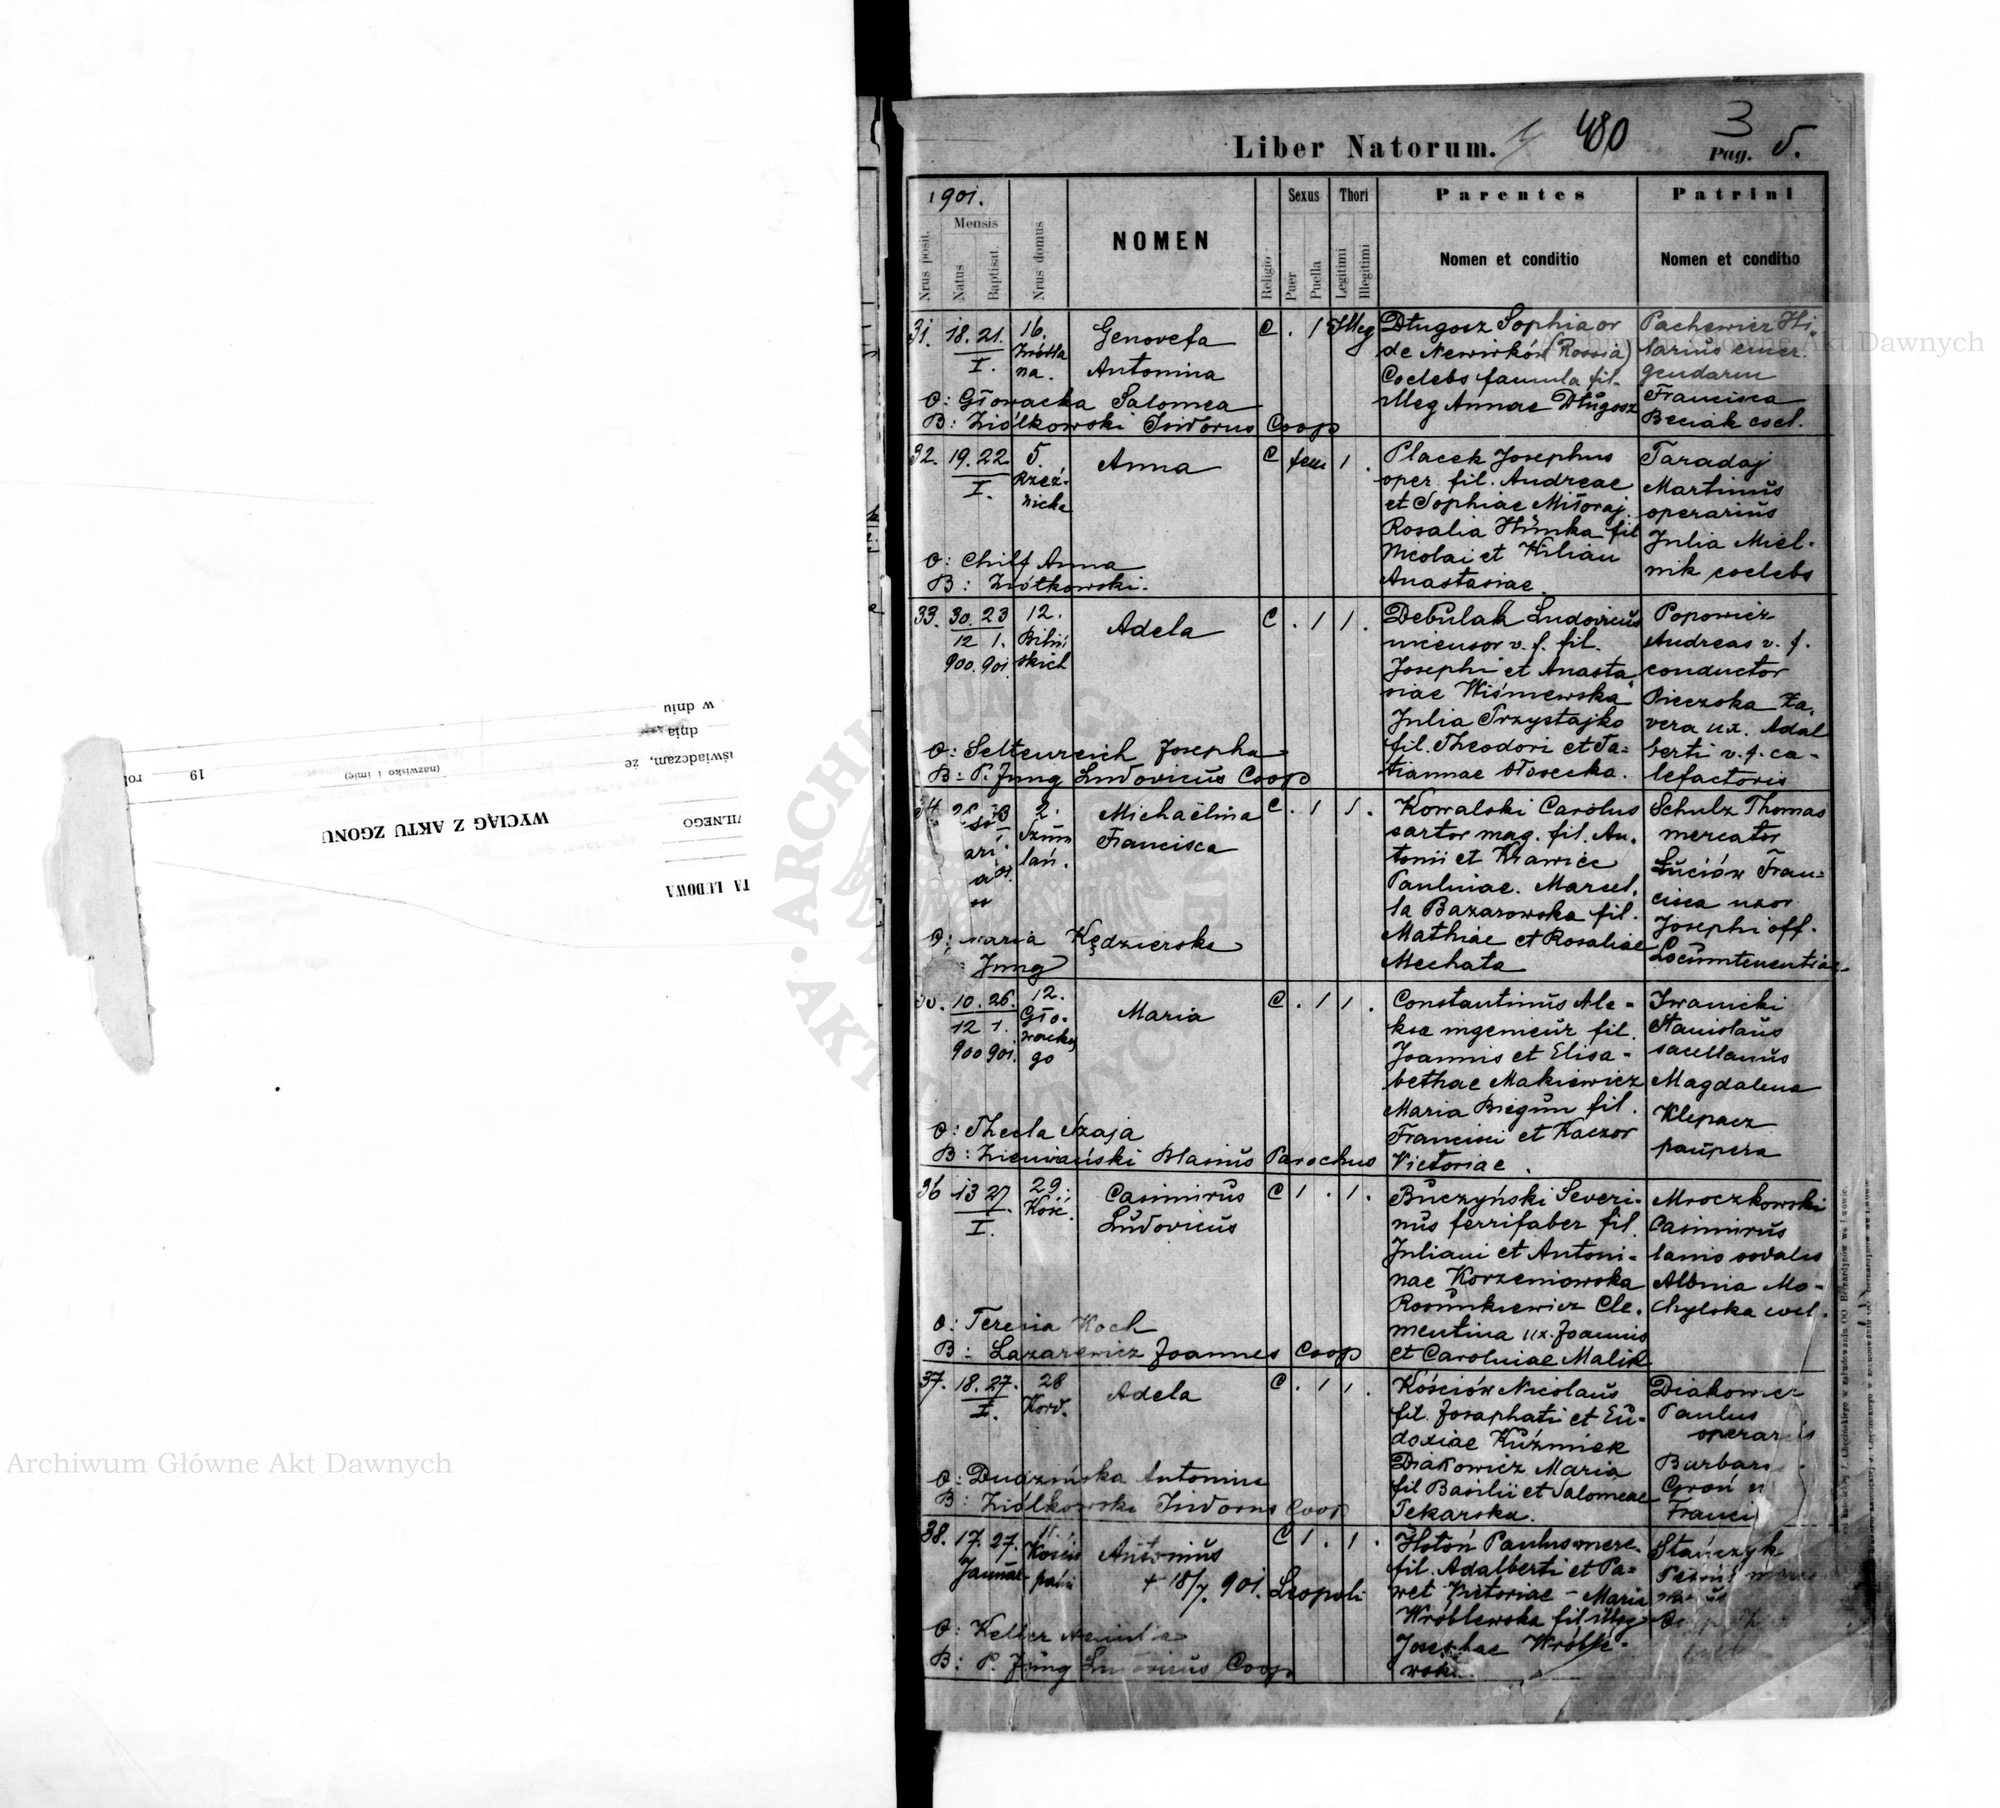 Liber Natorum. 480
3
Pag. 5.
1901.
Nrus posit.
Mensis
Natus
Baptisat.
Nrus domus
NOMEN
Religio
Sexus
Puer
Puella
Thori
Legitimi
Illegitimi
Parentes
Nomen et conditio
Patrini
Nomen et conditio
31. 18. 21. I. 16.
na.
Genovefa
Antonina
C . 1 Illeg
Długosz Sophia or
de Newirków (Rossia)
Coelebs famula fil.
illeg Annae Długosz
Pachewicz Hi-
larius emer.
gendarm
Francisca
Beciak coel.
O: Głowacka Salomea
B: Ziółkowski Isidorus Coop
32. 19. 22. I. 5.
Rzeź-
nicka
Anna
C fem 1 .
Placek Josephus
oper. fil. Andreae
et Sophiae Misoraj
Rosalia Humka fil
Nicolai et Kilian
Anastasiae.
Taradaj
Martinus
operarius
Julia Miel-
nik coelebs
O: Chilf Anna
B: Ziółkowski.
33. 30. 23
12 1.
900. 901.
12.
Biliń-
skich
Adela
C . 1 1 .
Debulak Ludovicus
incensor v. f. fil.
Josephi et Anasta
siae Wiśniewska
Julia Przystajko
fil. Theodori et Ta-
tiannae Wosecka.
Popowicz
Andreas v. f.
conductor
Pieczska Xa-
vera ux. Adal
berti v. f. ca-
lefactoris
O: Seltenreich Josepha
B: P. Jung Ludovicus Coop
2.
Szum
lań.
Michaëlina
Francisca
C . 1 1 .
Kowalski Carolus
sartor mag. fil. An-
tonii et Krawiec
Paulniae. Marcel-
la Bazarowska fil.
Mathiae et Rosaliae
Mechata
Schulz Thomas
mercator
Łuciów Fran-
cisca uxor
Josephi off.
Locumtenentiae
O: Maria Kędzierska
Jung
10. 26.
12 1.
900 901.
12.
Gło-
wackie
go
Maria
C . 1 1 .
Constantinus Ale-
ksa ingenieur fil.
Joannis et Elisa-
bethae Makiewicz
Maria Biegun fil.
Francisci et Kaczor
Victoriae.
Iwanicki
Stanislaus
sacellanus
Magdalena
Klepacz
paupera
O: Thecla Szaja
B: Zieniański Blasius Parochus
36 13 27. I. 29.
Kość.
Casimirus
Ludovicus
C 1 . 1 .
Buczyński Severi-
nus ferrifaber fil.
Juliani et Antoni-
nae Korzeniowska
Rosunkiewicz Cle-
mentina ux. Joannis
et Carolniae Malik
Mroczkowski
Casimirus
lanio sodalis
Albina Mo-
chylska coel.
O: Teresia Koch
B: Lazarewicz Joannes Coop
37. 18. 27. I. 28
Kord.
Adela
C . 1 1 .
Kościów Nicolaus
fil. Josaphati et Eu-
doxiae Kuźmiek
Diakowicz Maria
fil Basilii et Salomeae
Pekarska.
Diakowicz
Paulus
operarius
Barbara
Groń
Franci
O: Dudzińska Antonina
B: Ziółkowski Isidorus Coop
38. 17. 27.
Januar
11.
Antonius
+ 18/7. 901. Leopoli
C 1 . 1 .
Hołoń Paulus merc.
fil. Adalberti et Pa-
wet Victoriae - Maria
Wróblewska fil illeg
Josephae Wróble-
wska.
Stańczyk
O: Keller
B: P. Jung Ludovicus Coop
w dniu
dnia
oświadczam, że
(nazwisko i imię)
19
WYCIĄG Z AKTU ZGONU
TA LUDOWA
Archiwum Główne Akt Dawnych
Archiwum Główne Akt Dawnych